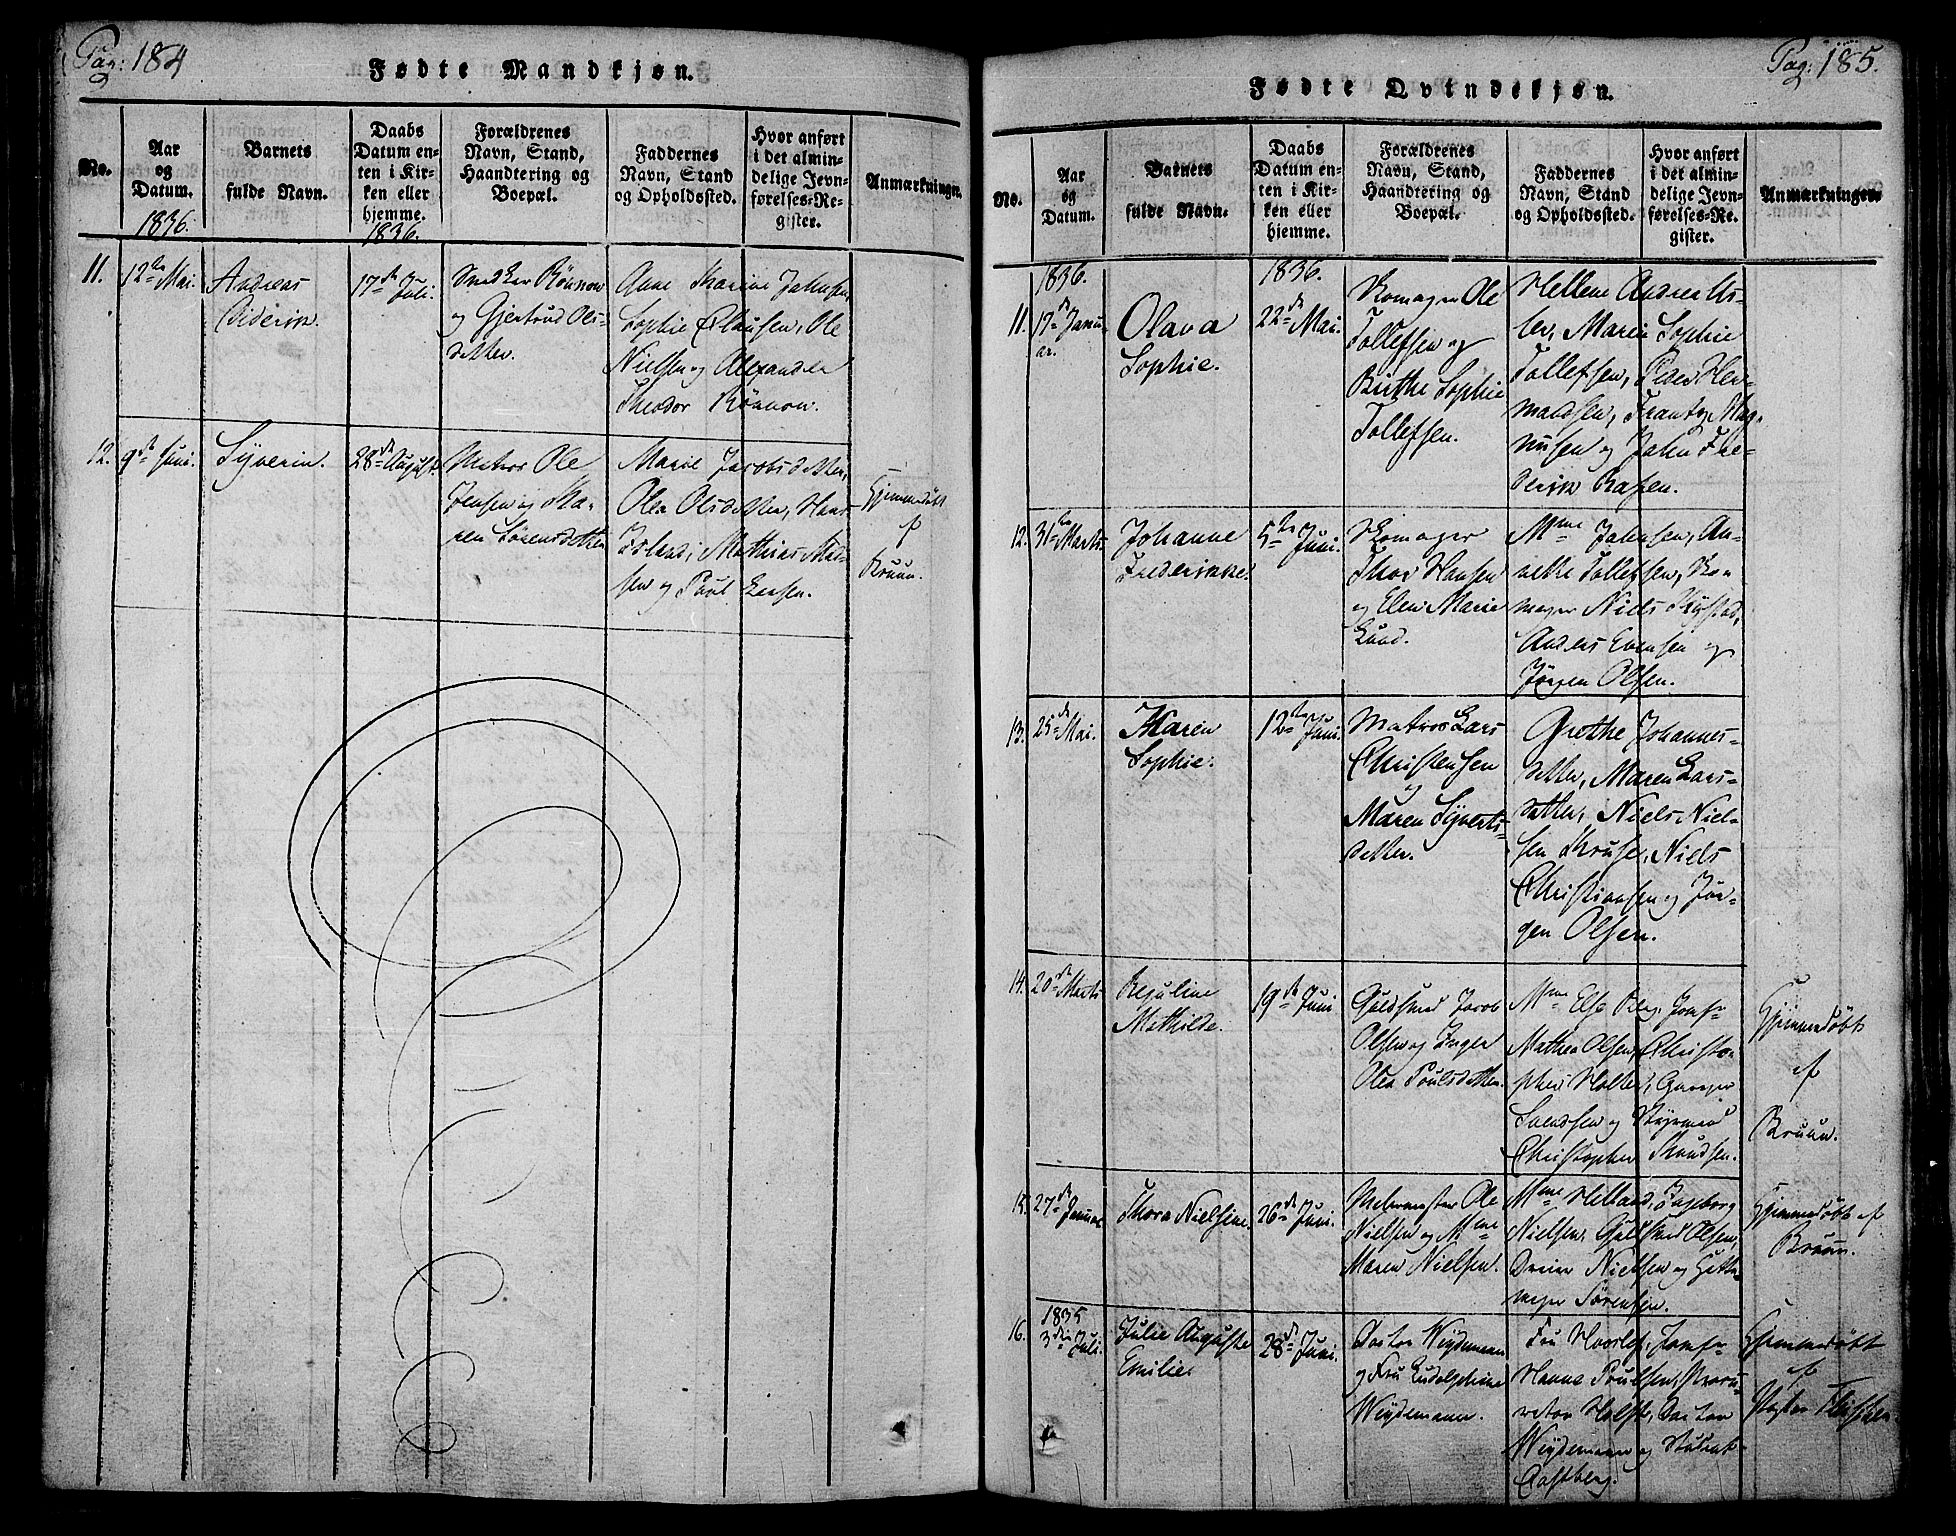 Pag: 184
Fødte Mandkjøn.
No.
Aar
og
Datum.
1836.
Barnets
fulde Navn.
Daabs
Datum en-
ten i Kir-
ken eller
hjemme.
1836.
Forældrenes
Navn, Stand,
Haandtering og
Boepæl.
Faddernes
Navn, Stand
og Opholdssted.
Hvor anført
i det almin-
delige Jevn-
førelses-Re-
gister.
Anmærkninger.
11.
12te Mai.
Andreas
Diderik.
17de Juli.
Snedker Rönnow
og Gjertrud Ols-
datter.
Anne Marine Jahnsen,
Sophie Clausen, Ole
Nielsen og Alexander
Theodor Rönnow.
12.
9de Juni.
Syverin.
28de August.
Matros Ole
Jensen og Ma-
ren Sörensdatter
Marie Jacobsdatter,
Olea Olsdatter, Hans
Mathias Mad-
sen og Poul Larsen.
Hjemmedöbt
af
Bruun.
Pag: 185.
Fødte Qvindekjøn.
No.
Aar
og
Datum.
Barnets
fulde Navn.
Daabs
Datum en-
ten i Kir-
ken eller
hjemme.
Forældrenes
Navn, Stand,
Haandtering og
Boepæl.
Faddernes
Navn, Stand
og Opholdssted.
Hvor anført
i det almin-
delige Jevn-
førelses-Re-
gister.
Anmærkninger.
1836.
1836.
11.
17de Janu-
ar.
Olava
Sophie.
22de Mai.
Skomager Ole
Tollefsen og
Birthe Sophie
Tollefsen.
Hellene Andrea
Maren Sophie
Tollefsen, Peder Her-
mandsen, Frantz Mag-
nusen og Jahn Fre-
derik Bassen.
12.
31te Marts
Johanne
Frederikke.
5te Juni.
Skomager
Thor Hansen
og Elen Marie
Lund.
Mme Jahnsen, An-
nette Tollefsen, Sko-
mager Niels
Anders Evensen og
Jörgen Olsen.
13.
25de Mai.
Maren
Sophie.
12te Juni.
Matros Lars
Christensen
og
Maren Syverts-
datter.
Grethe Johannes-
datter, Maren Lars-
datter, Niels Niel-
sen Kruse, Niels
Christiansen og Jör-
gen Olsen.
14.
20de Marts
Regeline
Mathilde.
19de Juni
Guldsmed Jacob
Olsen og Inger
Olea Poulsdatter.
Mme Else Jomfr
Mathea Olsen, Christo-
pher Holter,
Svendsen og Styrmand
Christopher Knudsen.
Hjemmedöbt
af
Bruun.
15.
27de Januar
Thora Nielsine.
26de Juni.
Ole
Nielsen og Mme
Maren Nielsen.
Mme Helland, Ingeborg
Nielsen, Guldsmed Olsen,
Nielsen og
Sörensen.
Hjemmedöbt af
Bruun.
16.
1835
3die Juli.
Julie Auguste
Emilie.
28de Juni.
Doctor Weydemann
og Fru Ludolphine
Weydemann.
Fru Jomfr
Hanna Poulsen,
Holst, Doctor
Weydemann og Student
Aastberg.
Hjemmedöbt
af
Pastor Fleischer.